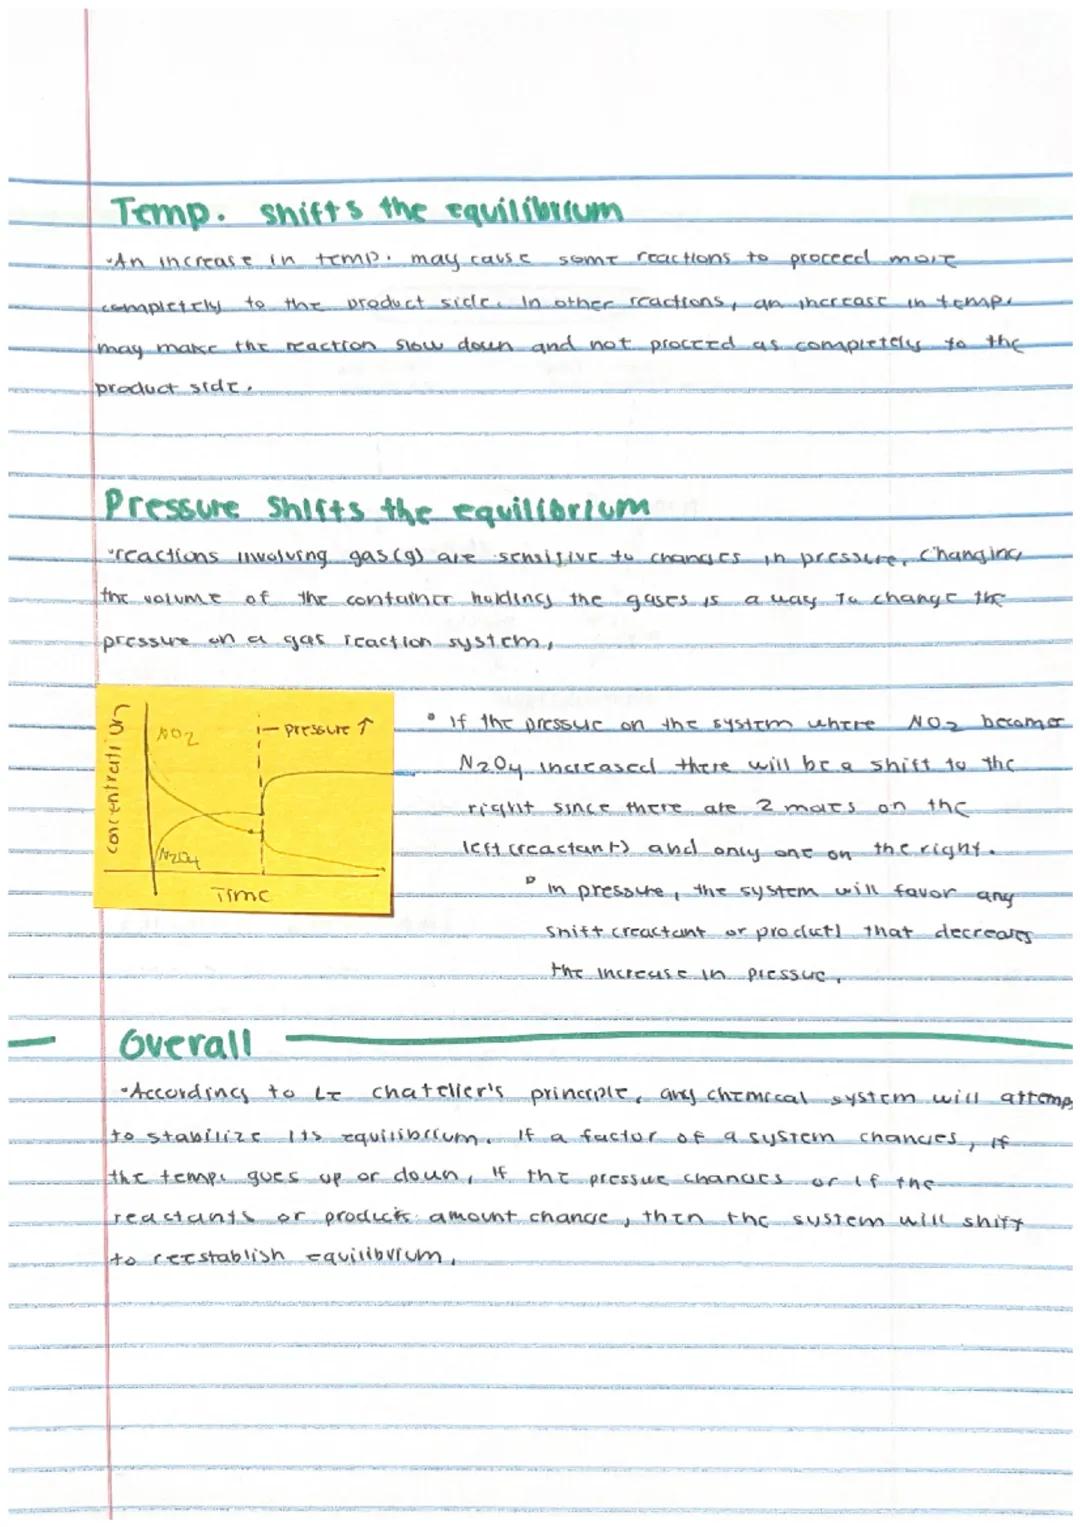 Temp. shifts the equilibrium
•An increase in temp. may cause some reactions to proceed more
completely to the product side. In other reactions, an increase in temp.
may make the reaction slow down and not proceed as completely to the
product side.
Pressure Shifts the equilibrium
•reactions involving gas(g) are sensitive to changes in pressure. Changing
the volume of the container holding the gases is a way to change the
pressure on a gas reaction system.
concentration
NO2
N2O4
|- pressure ↑
Time
• If the pressue on the system where NO2 becomes
N2O4 increased there will be a shift to the
right since there are 2 moles on the
left (reactant) and only one on the right.
• In pressure, the system will favor any
shift (reactant or product) that decreases
the increase in pressue.
Overall
•According to Le chatelier's principle, any chemical system will attemp
to stabilize its equilibrium. If a factor of a system changes, if
the temp. goes up or down, if the pressue changes or if the
reactants or products amount change, then the system will shift
to reestablish equilibrium.